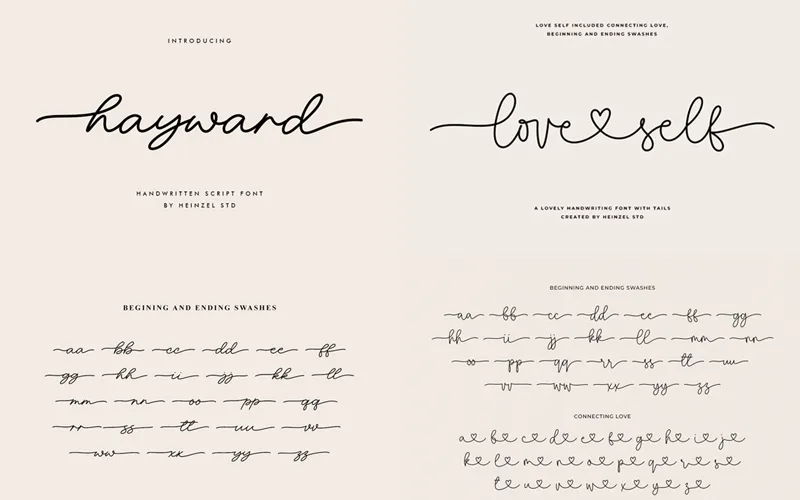 INTRODUCING
hayward
HANDWRITTEN SCRIPT FONT
BY HEINZEL STD
BEGINING AND ENDING SWASHES
aa bb cc dd ee ff
gg hh ii jj kk ll
mm nn oo pp qq
rr ss tt uu vv
ww xx yy zz
LOVE SELF INCLUDED CONNECTING LOVE,
BEGINNING AND ENDING SWASHES
love♡self
A LOVELY HANDWRITING FONT WITH TAILS
CREATED BY HEINZEL STD
BEGINNING AND ENDING SWASHES
aa bb cc dd ee ff gg
hh ii jj kk ll mm nn
oo pp qq rr ss tt uu
vv ww xx yy zz
CONNECTING LOVE
a♡ b♡ c♡ d♡ e♡ f♡ g♡ h♡ i♡ j♡
k♡ l♡ m♡ n♡ o♡ p♡ q♡ r♡ s♡
t♡ u♡ v♡ w♡ x♡ y♡ z♡